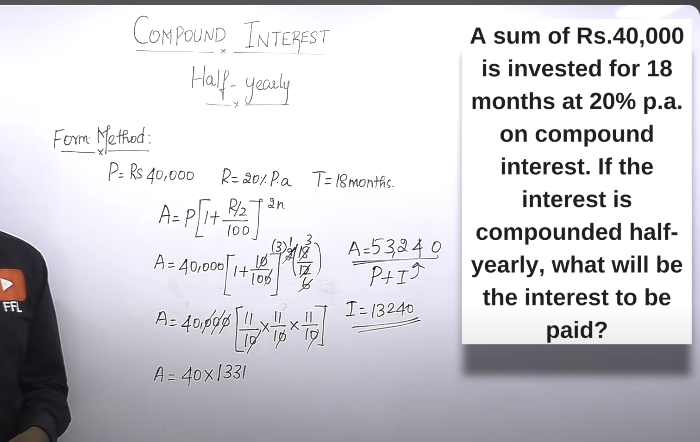 COMPOUND INTEREST
Half-yearly
Form Method:
P = Rs 40,000 R = 20% P.a T = 18 months.
A = P[1 + R/2/100]^2n
A = 40,000[1 + 10/100]^(3) 2(18/12)
A = 40,000[11/10 × 11/10 × 11/10]
A = 40 × 1331
A = 53,240
P + I
I = 13240
A sum of Rs.40,000
is invested for 18
months at 20% p.a.
on compound
interest. If the
interest is
compounded half-
yearly, what will be
the interest to be
paid?
FFL